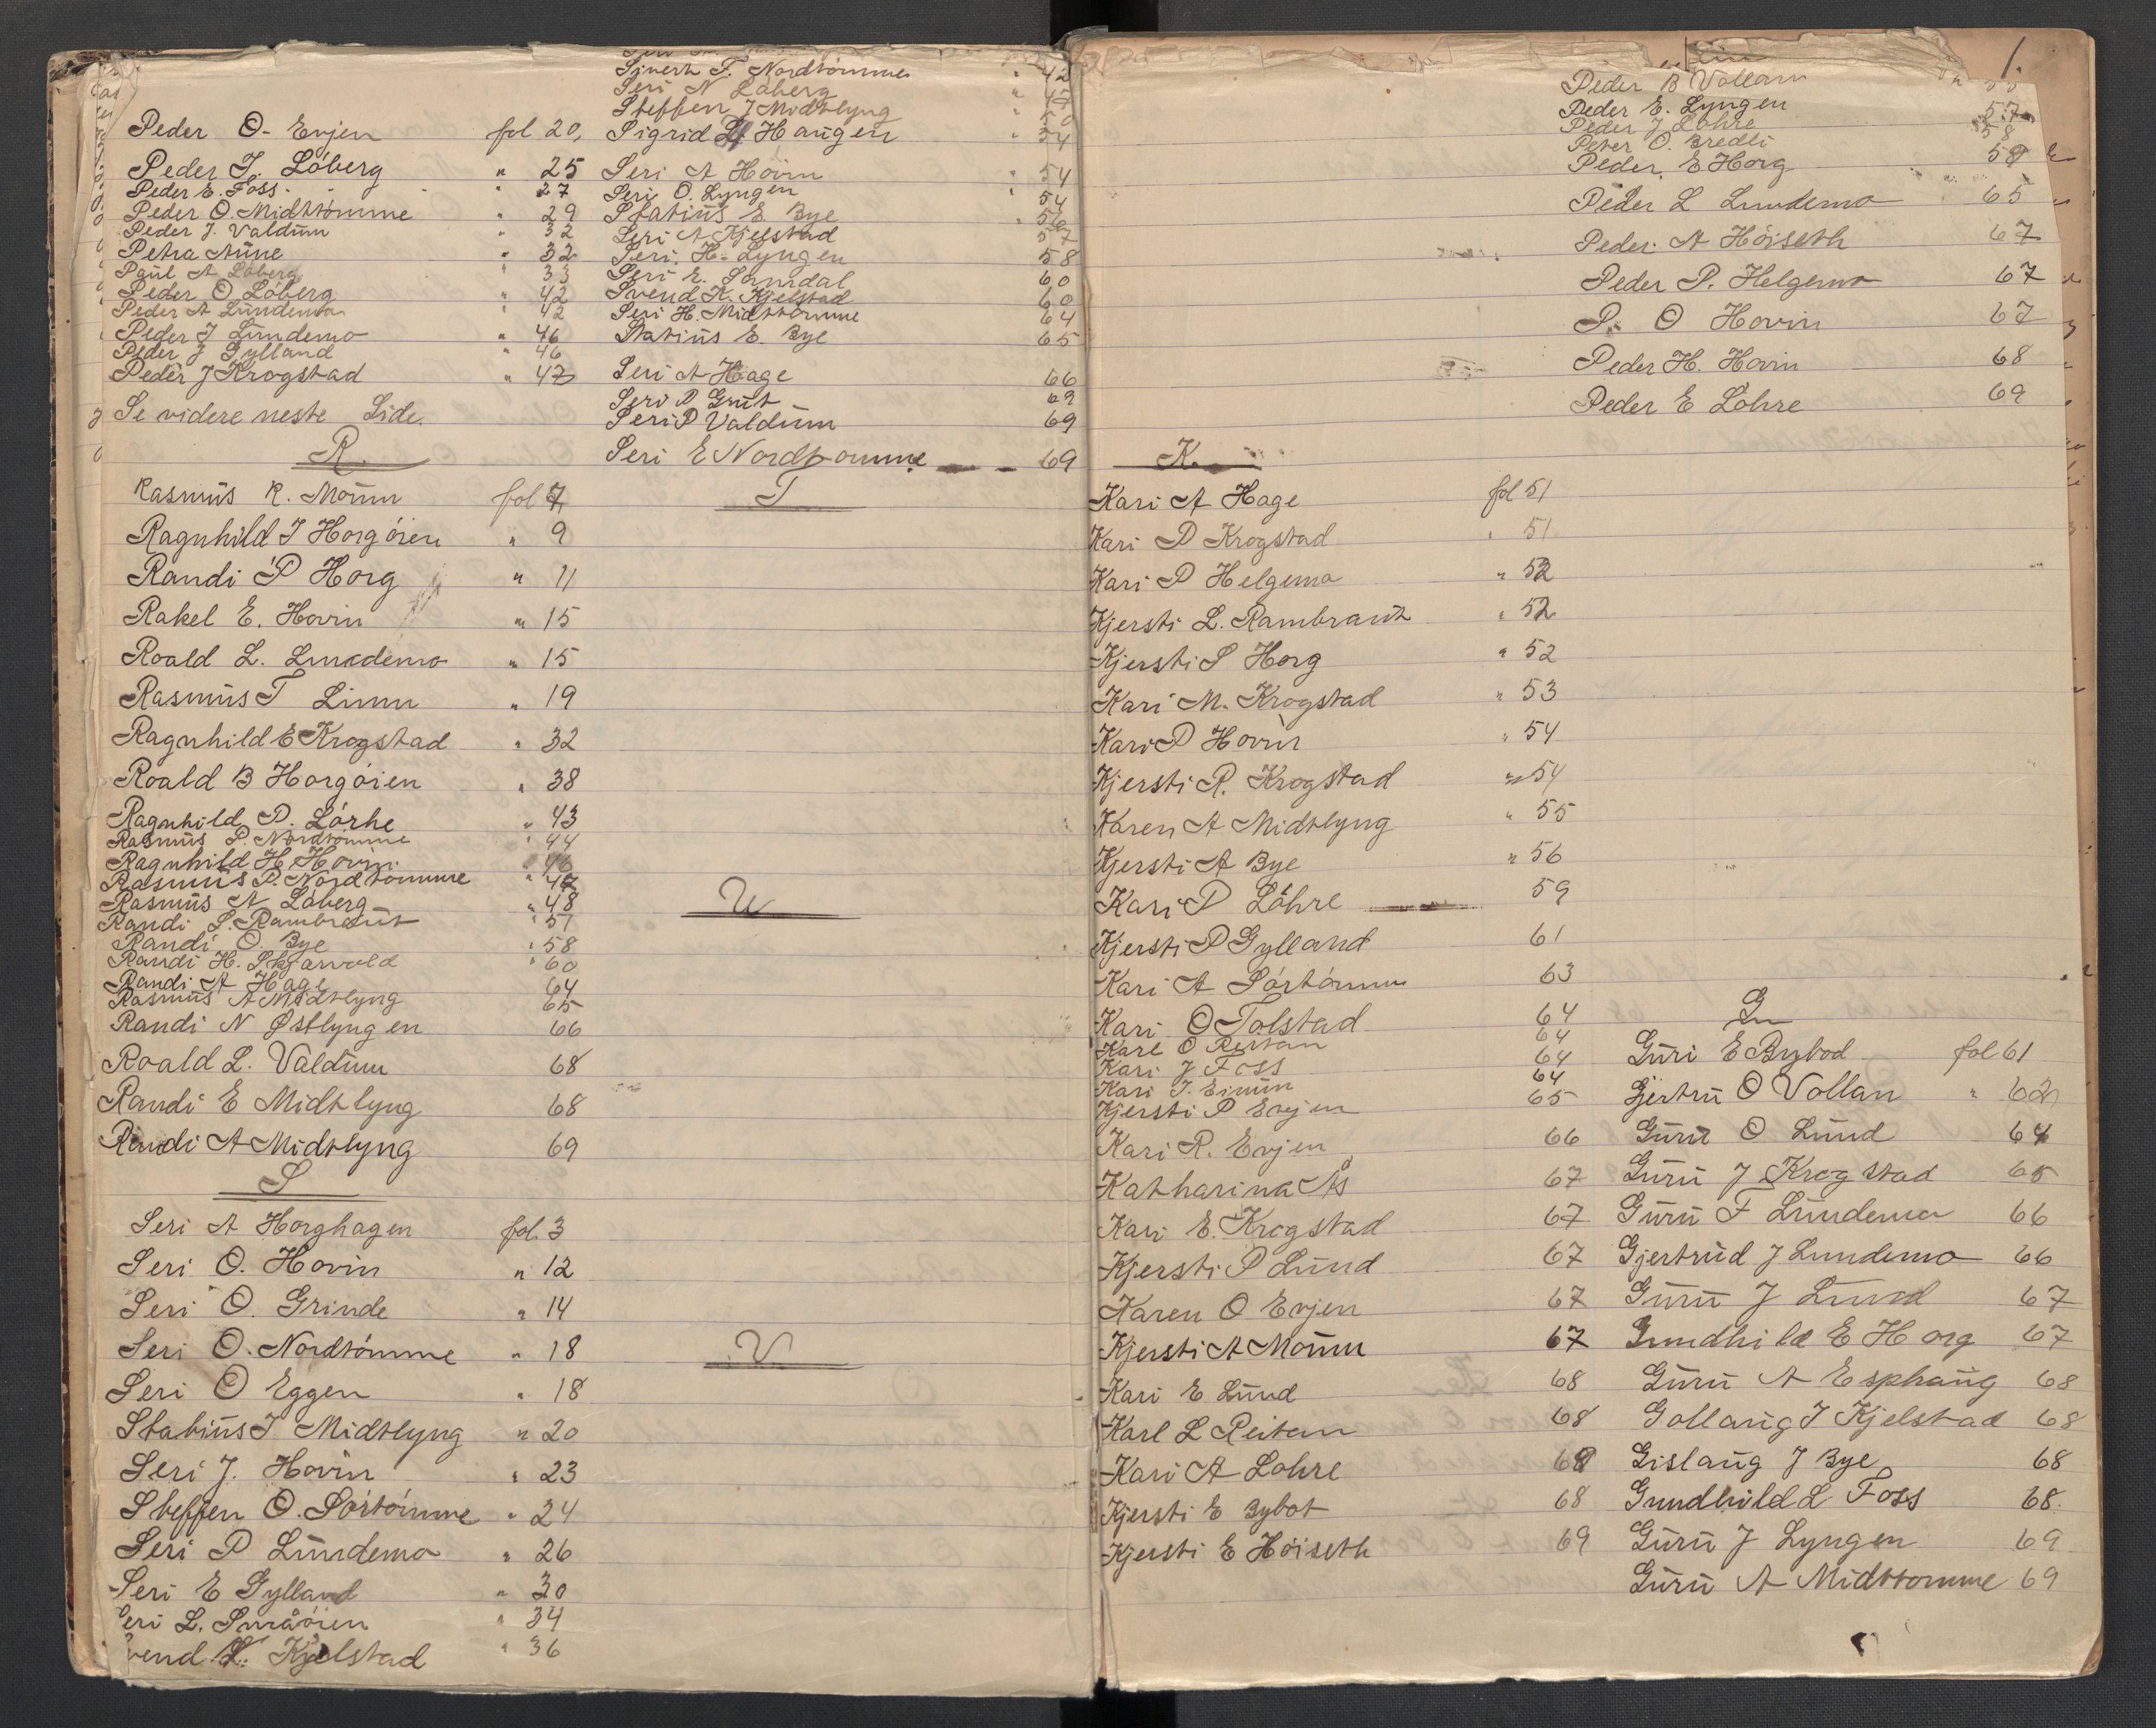 Peder O. Evjen fol 20,
Peder J. Löberg " 25
Peder E. Foss. " 27
Peder O. Midttömme " 29
Peder J. Valdum " 32
Petra Aune " 32
Paul A Löberg " 33
Peder O Löberg " 42
Peder A Lundemo " 42
Peder J Lundemo " 46
Peder J Gylland " 46
Peder J Krogstad " 47
Se videre neste Side.
R.
Rasmus R. Moum fol 7
Ragnhild J Horgöien " 9
Randi P Horg " 11
Rakel E. Hovin " 15
Roald L. Lundemo " 15
Rasmus T Limm " 19
Ragnhild E Krogstad " 32
Roald B Horgöien " 38
Ragnhild P. Lörhe " 43
Rasmus P. Nordtömme " 44
Ragnhild H Hovin " 46
Rasmus P. Nordtömme " 47
Rasmus A Löberg " 48
Randi L. Rambraut " 51
Randi O. Bye " 58
Randi H. Skjærvold " 60
Randi A Hage 64
Rasmus A Midtlyng 65
Randi N Østlyngen 66
Roald L. Valdum 68
Randi E Midtlyng 68
Randi A Midtlyng 69
S
Seri A Horghagen fol. 3
Seri O. Hovin " 12
Seri O. Grinde " 14
Seri O. Nordtömme " 18
Seri O Eggen " 18
Statius J Midtlyng " 20
Seri J. Hovin " 23
Steffen O. Sörtömme " 24
Seri P Lundemo " 26
Seri E Gylland " 30
eri L. Småöien " 34
vend K. Kjelstad " 36
Sivert F. Nordtömme " 42
Seri N Löberg " 47
Steffen J Midtlyng " 50
Sigrid H Haugen " 54
Seri A Hovin " 54
Seri O. Lyngen " 54
Statius E Bye " 56
Seri A Kjelstad 57
Seri H. Lyngen 58
Seri E. Samdal 60
Svend K. Kjelstad 60
Seri H. Midttömme 64
Statius E. Bye 65
Seri A Hage 66
Seri P Grut 69
Seri P Valdum 69
Seri E Nordtomme 69
T
U
V
1.
Peder B Vollan "
Peder E. Lyngen 57
Peder J Löhre 58
Peter O. Bredli
Peder E Horg 59
Peder L Lundemo 65
Peder A Höiseth 67
Peder P. Helgemo 67
P. O Hovin 67
Peder H. Hovin 68
Peder E Lohre 69
K.
Kari A Hage fol 51
Kari P Krogstad " 51
Kari P Helgemo " 52
Kjersti L. Rambraut " 52
Kjersti S Horg " 52
Kari M. Krogstad " 53
Kari P Hovin " 54
Kjersti R. Krogstad " 54
Karen A Midtlyng " 55
Kjersti A Bye " 56
Kari P Löhre 59
Kjersti P Gylland 61
Kari A Sörtömme 63
Kari O Tolstad 64
Karl O Reitan 64
Kari J Foss 64
Kari J. Eimun 64
Kjersti P Evjen 65
Kari R. Evjen 66
Katharina Ås 67
Kari E. Krogstad 67
Kjersti P Lund 67
Karen O Evjen 67
Kjersti A Moum 67
Kari E Lund 68
Karl L Reitan 68
Kari A Lohre 68
Kjersti E Bybot 68
Kjersti E Höiseth 69
G
Guri E Bybod fol 61
Gjertru O Vollan " 62
Guru O Lund 64
Guru J Krogstad 65
Guru F Lundemo 66
Gjertrud J Lundemo 66
Guru J Lund 67
Gundhild E Horg 67
Guru A Esphaug 68
Gollaug J Kjelstad 68
Gislaug J Bye 68
Gundhild L Foss 68.
Guru J Lyngen 69
Guru A Midttomme 69